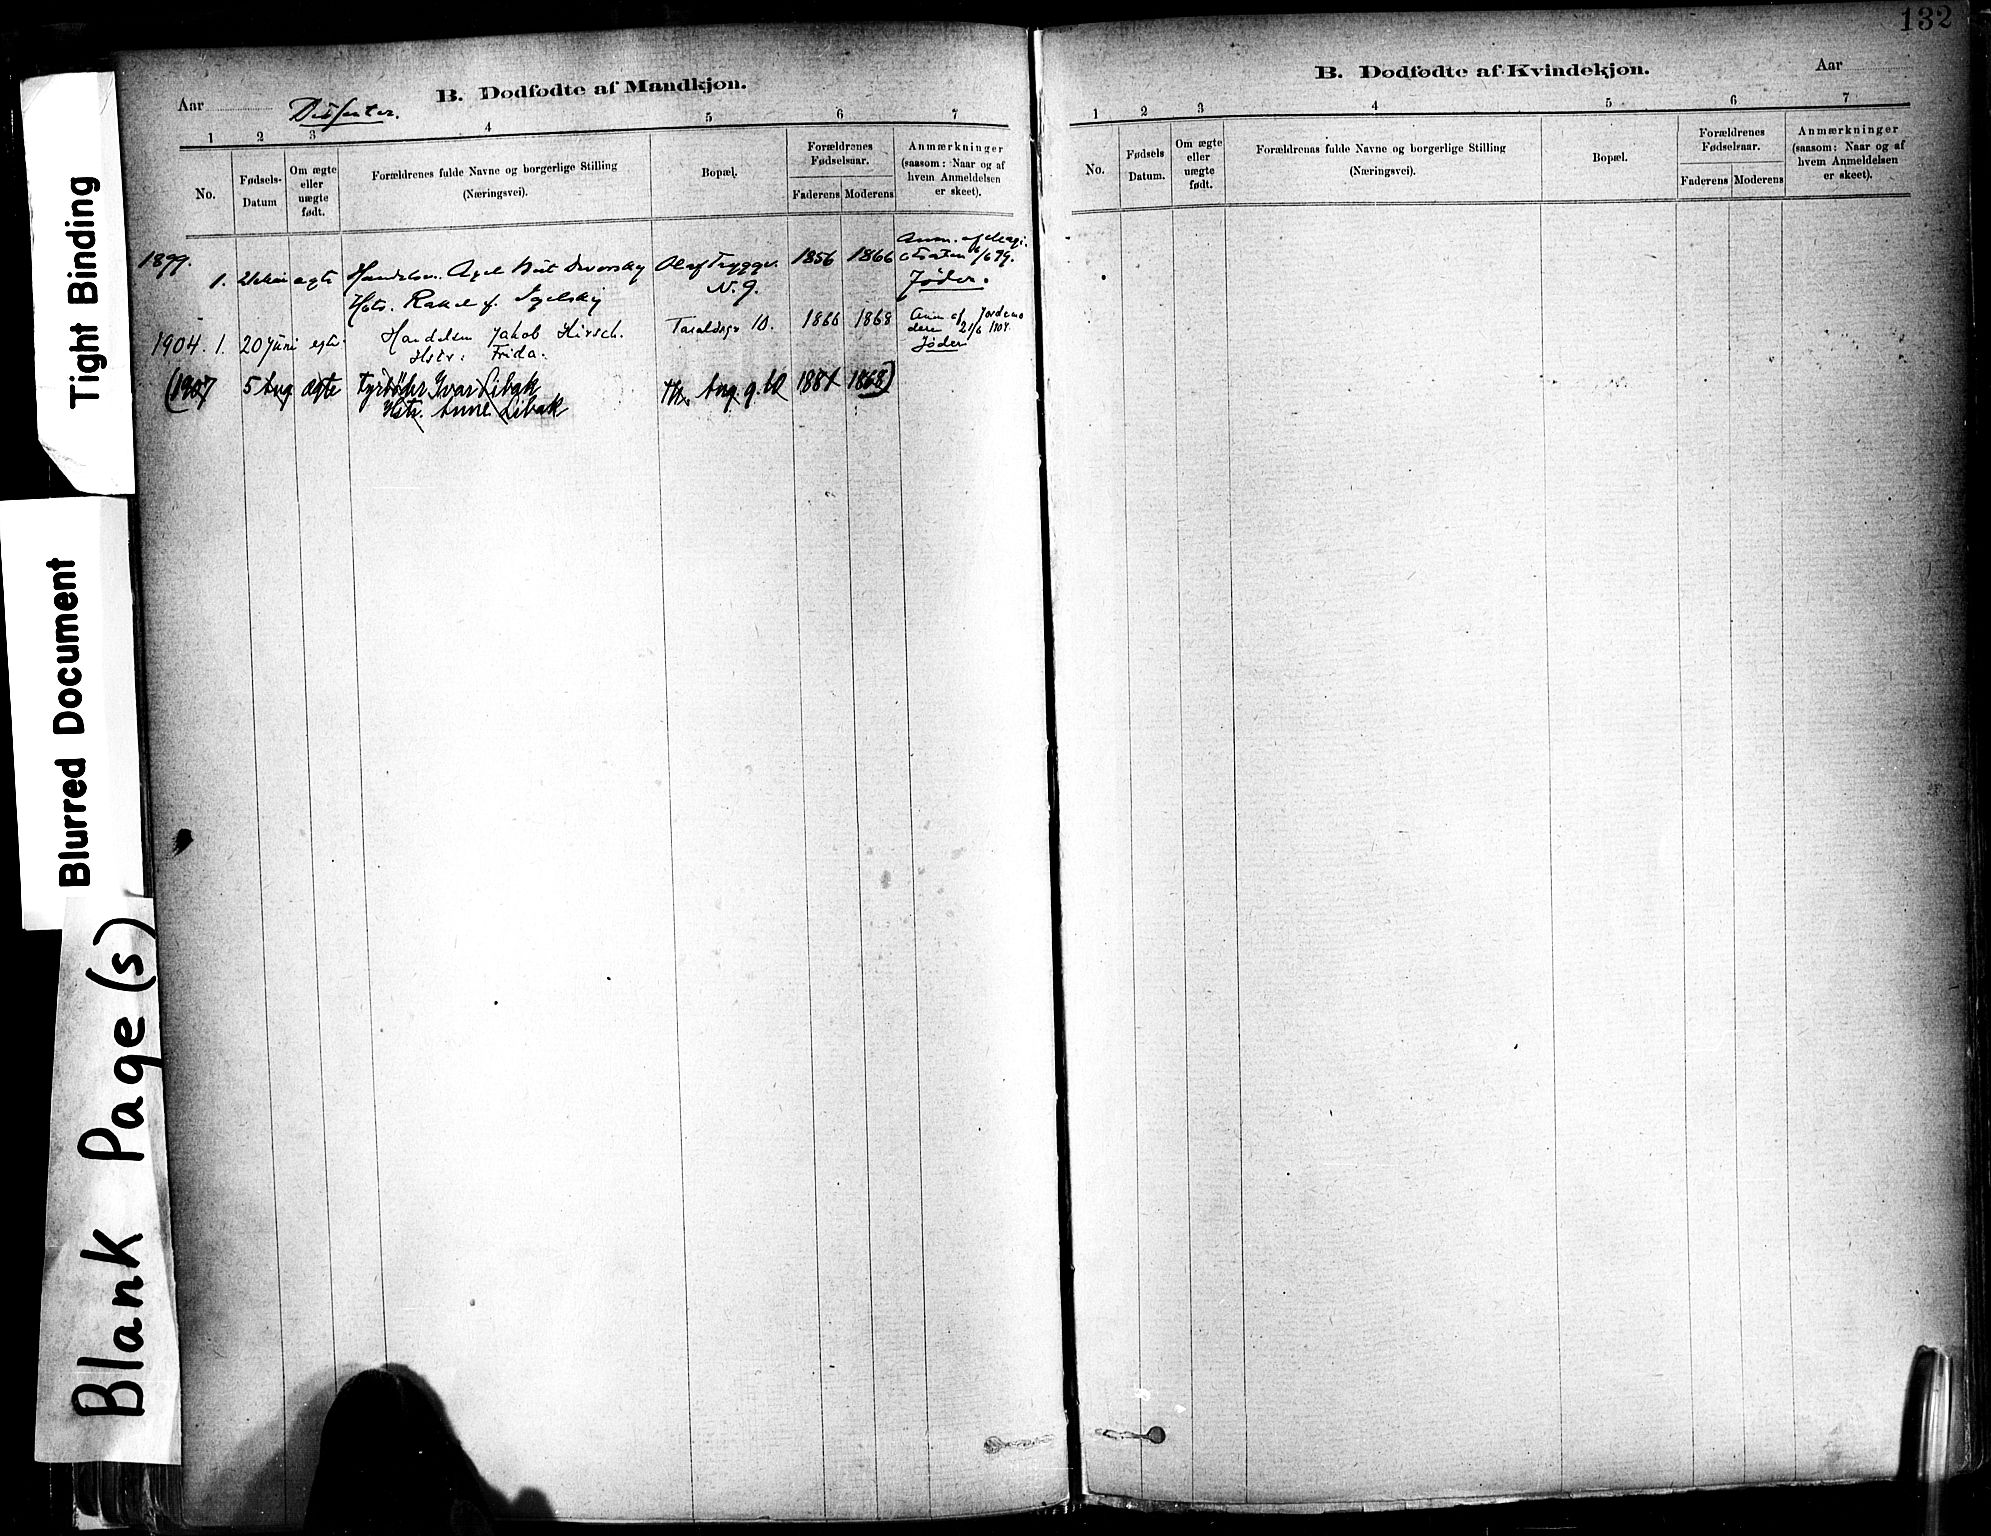 132
Tight Binding
Blurred Document
Blank Page(s)
Aar
Dissenter.
B. Dødfødte af Mandkjøn.
1 2 3 4 5 6 7
No.
Fødsels-
Datum
Om ægte
eller
uægte
født.
Forældrenes fulde Navne og borgerlige Stilling
(Næringsvei).
Bopæl.
Forældrenes
Fødselsaar.
Faderens Moderens
Anmærkninger
(saasom: Naar og af
hvem Anmeldelsen
er skeet).
1899.
1. ægte Handelsm. Dworsky Olaf Tryggv. 1856 1866
Hstr. Rakel f. N. 9.
Jøder.
1904. 1. 20 Juni egte Handelsm Jakob Hirsch. 10. 1866 1868 Anm af
Hstr: Frida. 21/6 1904.
Jøder
(1907 5 Aug ægte Ivar Libak 1881 1868)
Hstr. Anne Libak
B. Dødfødte af Kvindekjøn.
Aar
1 2 3 4 5 6 7
No.
Fødsels
Datum.
Om ægte
eller
uægte
født.
Forældrenas fulde Navne og borgerlige Stilling
(Næringsvei).
Bopæl.
Forældrenes
Fødselsaar.
Faderens Moderens
Anmærkninger
(saasom: Naar og af
hvem Anmeldelsen
er skeet).